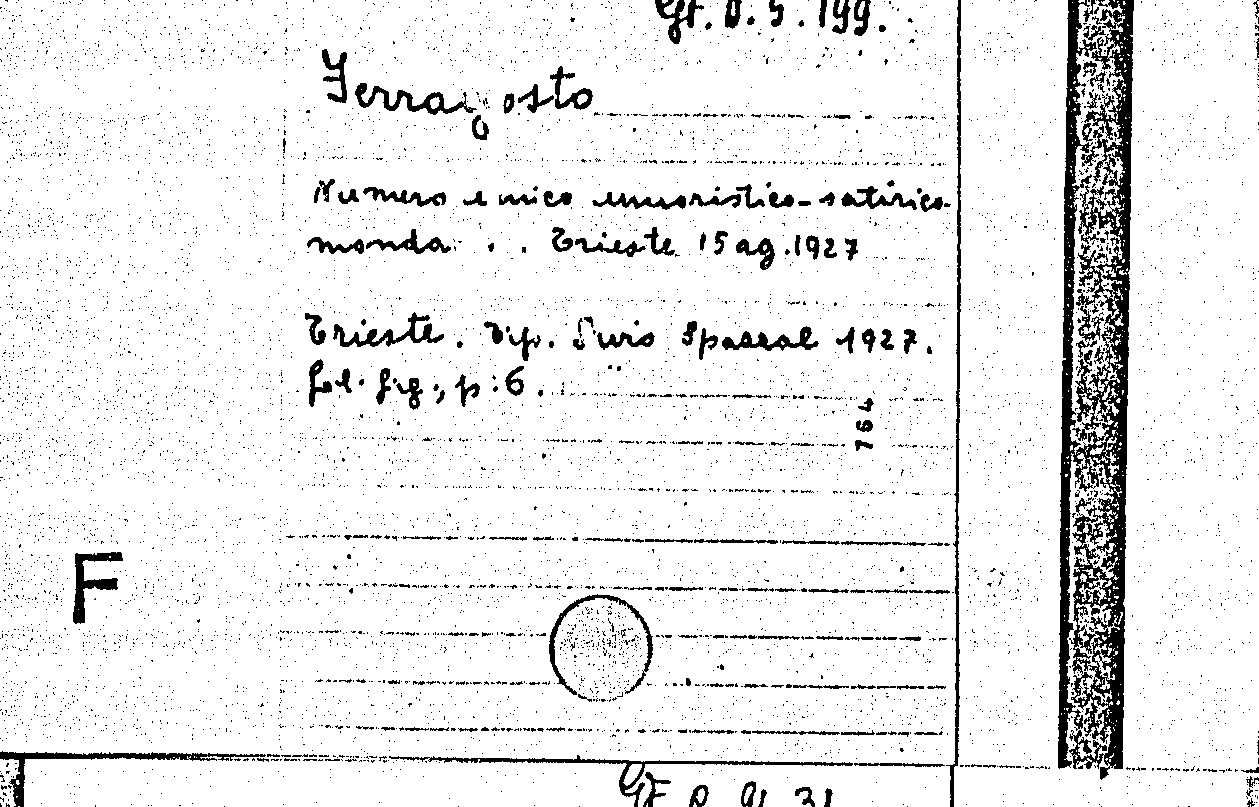 Gf. D. 5. 199.
Ferragosto
Numero unico umoristico-satirico-
monda . . Trieste 15 ag. 1927
Trieste. Tip. Spazzal 1927.
fol. fig., p. 6.
764
F